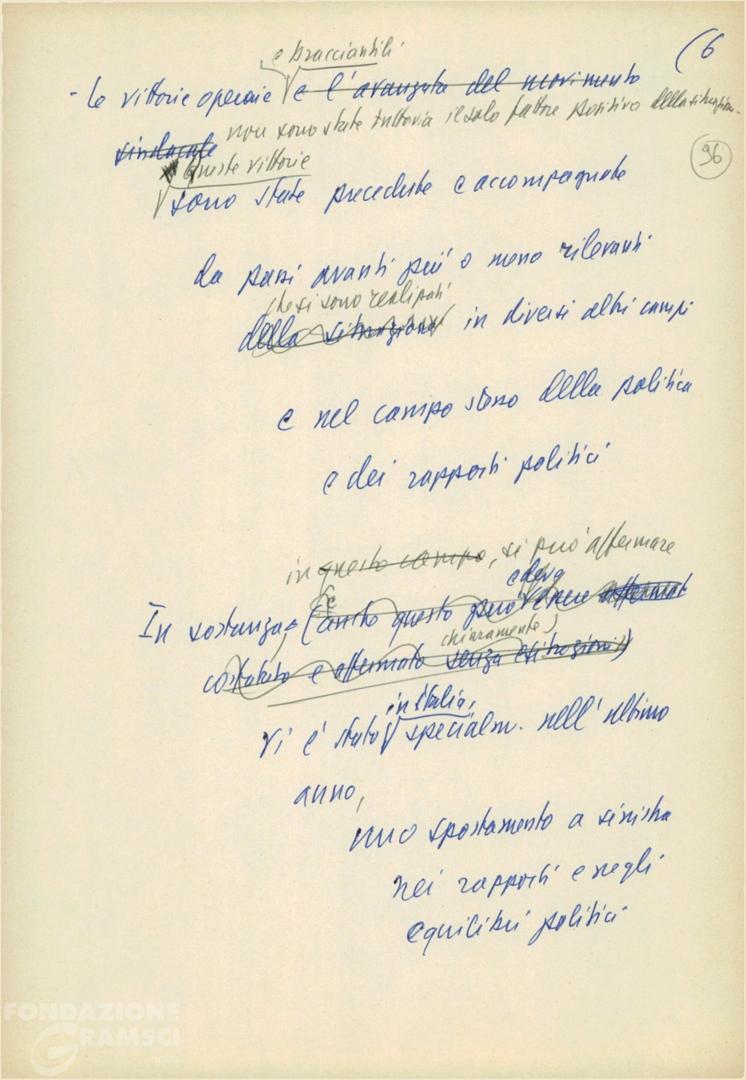 (6
96
e bracciantili
- Le vittorie operaie e l'avanzata del movimento
non sono state tuttavia il solo fattore positivo della situazion.
sindacale
queste vittorie
sono state precedute e accompagnate
da passi avanti più o meno rilevanti
che si sono realizzati
della situazione in diversi altri campi
e nel campo stesso della politica
e dei rapporti politici
in questo campo, si può affermare
e deve
In sostanza, (anche questo può essere affermato
chiaramente)
costatato e affermato senza esitazioni)
in Italia,
vi è stato specialm. nell'ultimo
anno,
uno spostamento a sinistra
nei rapporti e negli
equilibri politici
FONDAZIONE
GRAMSCI